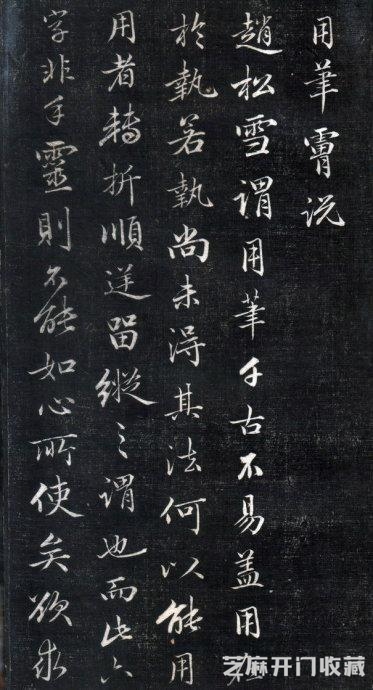 用筆膚说
趙松雪謂用筆千古不易蓋用
於執若執尚未得其法何以能用
用者轉折順逆留縱之謂也而此六
字非手靈則不能如心所使矣欲求
芝麻开门收藏